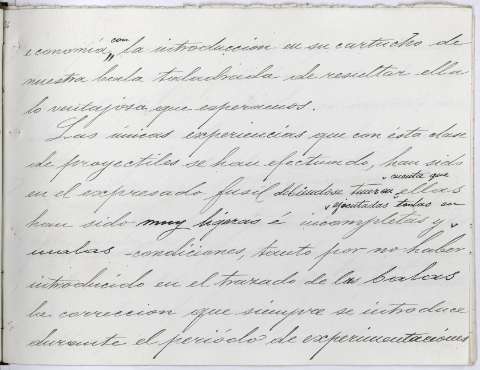 economía con la introduccion en su cartucho de
nuestra bala taladrada de resultar ella
lo ventajosa que esperamos.
Las únicas experiencias que con esta clase
de proyectiles se han efectuado, han sido
en el expresado fusil debiendose tener cuenta que ellas
han sido muy ligeras é incompletas y ejecutadas tantas en
malas condiciones, tanto por no haber
introducido en el trazado de las balas
la correccion que siempre se introduce
durante el período de experimentaciones